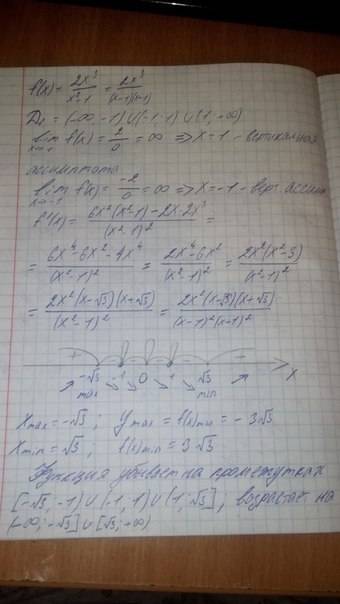 f(x) = 2x³/(x²-1) = 2x³/((x-1)(x-1))
D: = (-∞; -1) ∪ (-1; 1) ∪ (1; +∞)
lim x→1 f(x) = 2/0 = ∞ => x = 1 - вертикальная
ассимптота
lim x→-1 f(x) = -2/0 = ∞ => x = -1 - верт. ассим
f'(x) = (6x²(x²-1) - 2x·2x³)/(x²-1)² =
= (6x⁴-6x²-4x⁴)/(x²-1)² = (2x⁴-6x²)/(x²-1)² = 2x²(x²-3)/(x²-1)²
= 2x²(x-√3)(x+√3)/(x²-1)² = 2x²(x-√3)(x+√3)/((x-1)²(x-1)²)
+ - - - - +
-√3 -1 0 1 √3 x
max min
xmax = -√3; ymax = f(x)max = -3√3
xmin = √3; f(x)min = 3√3
Функция убывает на промежутках
[-√3; -1) ∪ (-1; 1) ∪ (1; √3]; возрастает на
(-∞; -√3] ∪ [√3; +∞)